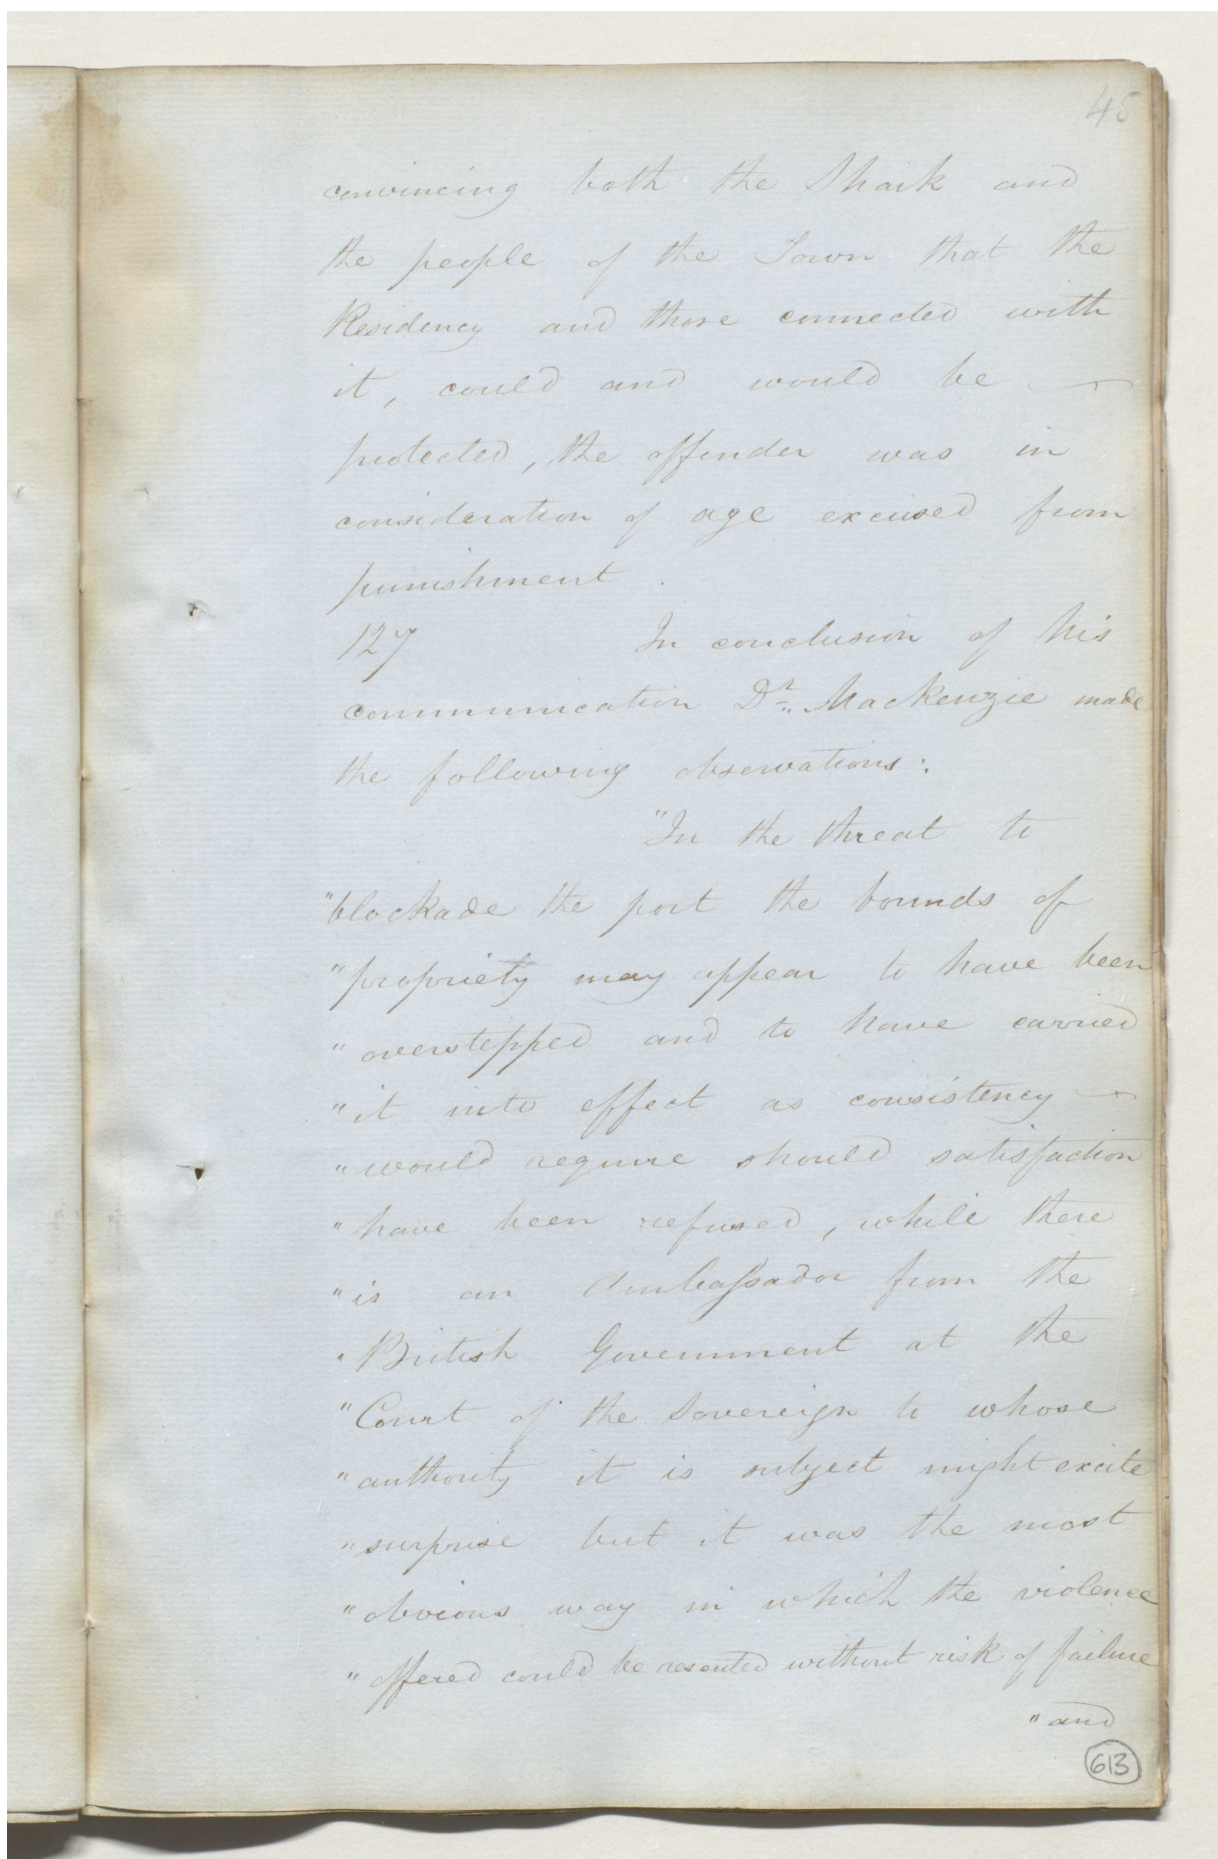 45
convincing both the Shaik and
the people of the Town that the
Residency and those connected with
it, could and would be
protected, the offender was in
consideration of age excused from
punishment.
127 In conclusion of his
communication Dr. Mackenzie made
the following observations:
"In the threat to
"blockade the port the bounds of
"propriety may appear to have been
"overstepped and to have carried
"it into effect as consistency
"would require should satisfaction
"have been refused, while there
"is an Ambassador from the
"British Government at the
"Court of the Sovereign to whose
"authority it is subject might excite
"surprise but it was the most
"obvious way in which the violence
"offered could be resented without risk of failure
"and
613